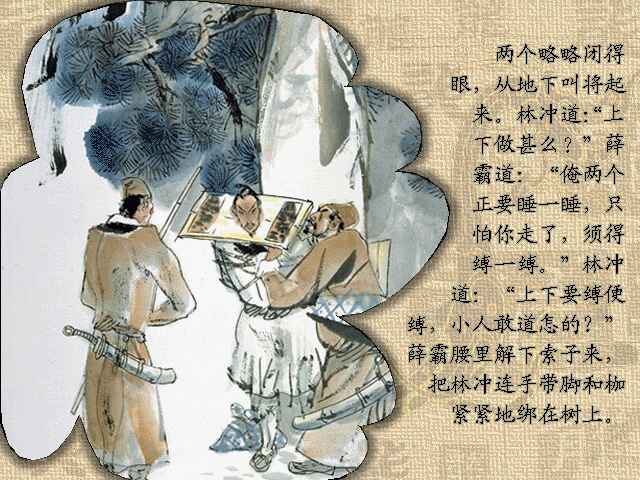 两个略略闭得
眼，从地下叫将起
来。林冲道：“上
下做甚么？”薛
霸道：“俺两个
正要睡一睡，只
怕你走了，须得
缚一缚。”林冲
道：“上下要缚便
缚，小人敢道怎的？”
薛霸腰里解下索子来，
把林冲连手带脚和枷
紧紧地绑在树上。